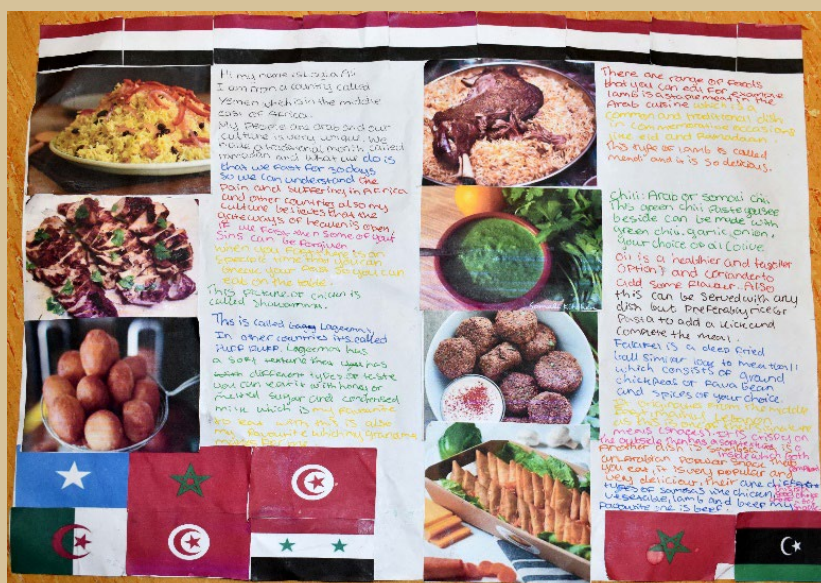 Hi my name is Ali
I am from a country called
Yemen which is in the middle
east of Africa.
My people are arab and our
culture is very unique. We
have a traditional month called
ramadan and what we do is
that we fast for 30 days
so we can understand the
pain and suffering in Africa
and other countries also my
culture believes that the
gateways of heaven is open
if we fast then some of your
sins can be forgiven
when you fast there is an
specific time that you can
break your fast so you can
eat on the table.
This picture of chicken is
called Shawarma.
This is called Lagaemat,
In other countries its called
Puff Puff. Lagaemat has
a soft texture that has
different types of taste
you can eat it with honey or
melted sugar and condensed
milk which is my favourite
to eat with this is also
my favourite which my grandma
makes for me
There are range of foods
that you can eat for example
lamb is a staple meat in the
Arab cuisine which is a
common and traditional dish
in commemorative occasions
like eid and Ramadaan.
This type of lamb is called
mendi and it is so delicious.
Chili: Arab or somali chili
This green chili paste you see
beside can be made with
green chili, garlic, onion,
your choice of oil (olive
oil is a healthier and tastier
option) and coriander to
add some flavour. Also
this can be served with any
dish but Preferably rice or
Pasta to add a kick and
complete the meal.
Falafel is a deep fried
ball similar to meatball
which consists of ground
chickpeas or Fava bean
and spices of your choice.
It originates from the middle
East
crispy on
the outside
Another dish is
an arabian popular snack that
you eat, it is very popular and
very delicious, their are different
types of samosas like chicken,
vegetable, lamb and beef my
favourite one is beef.